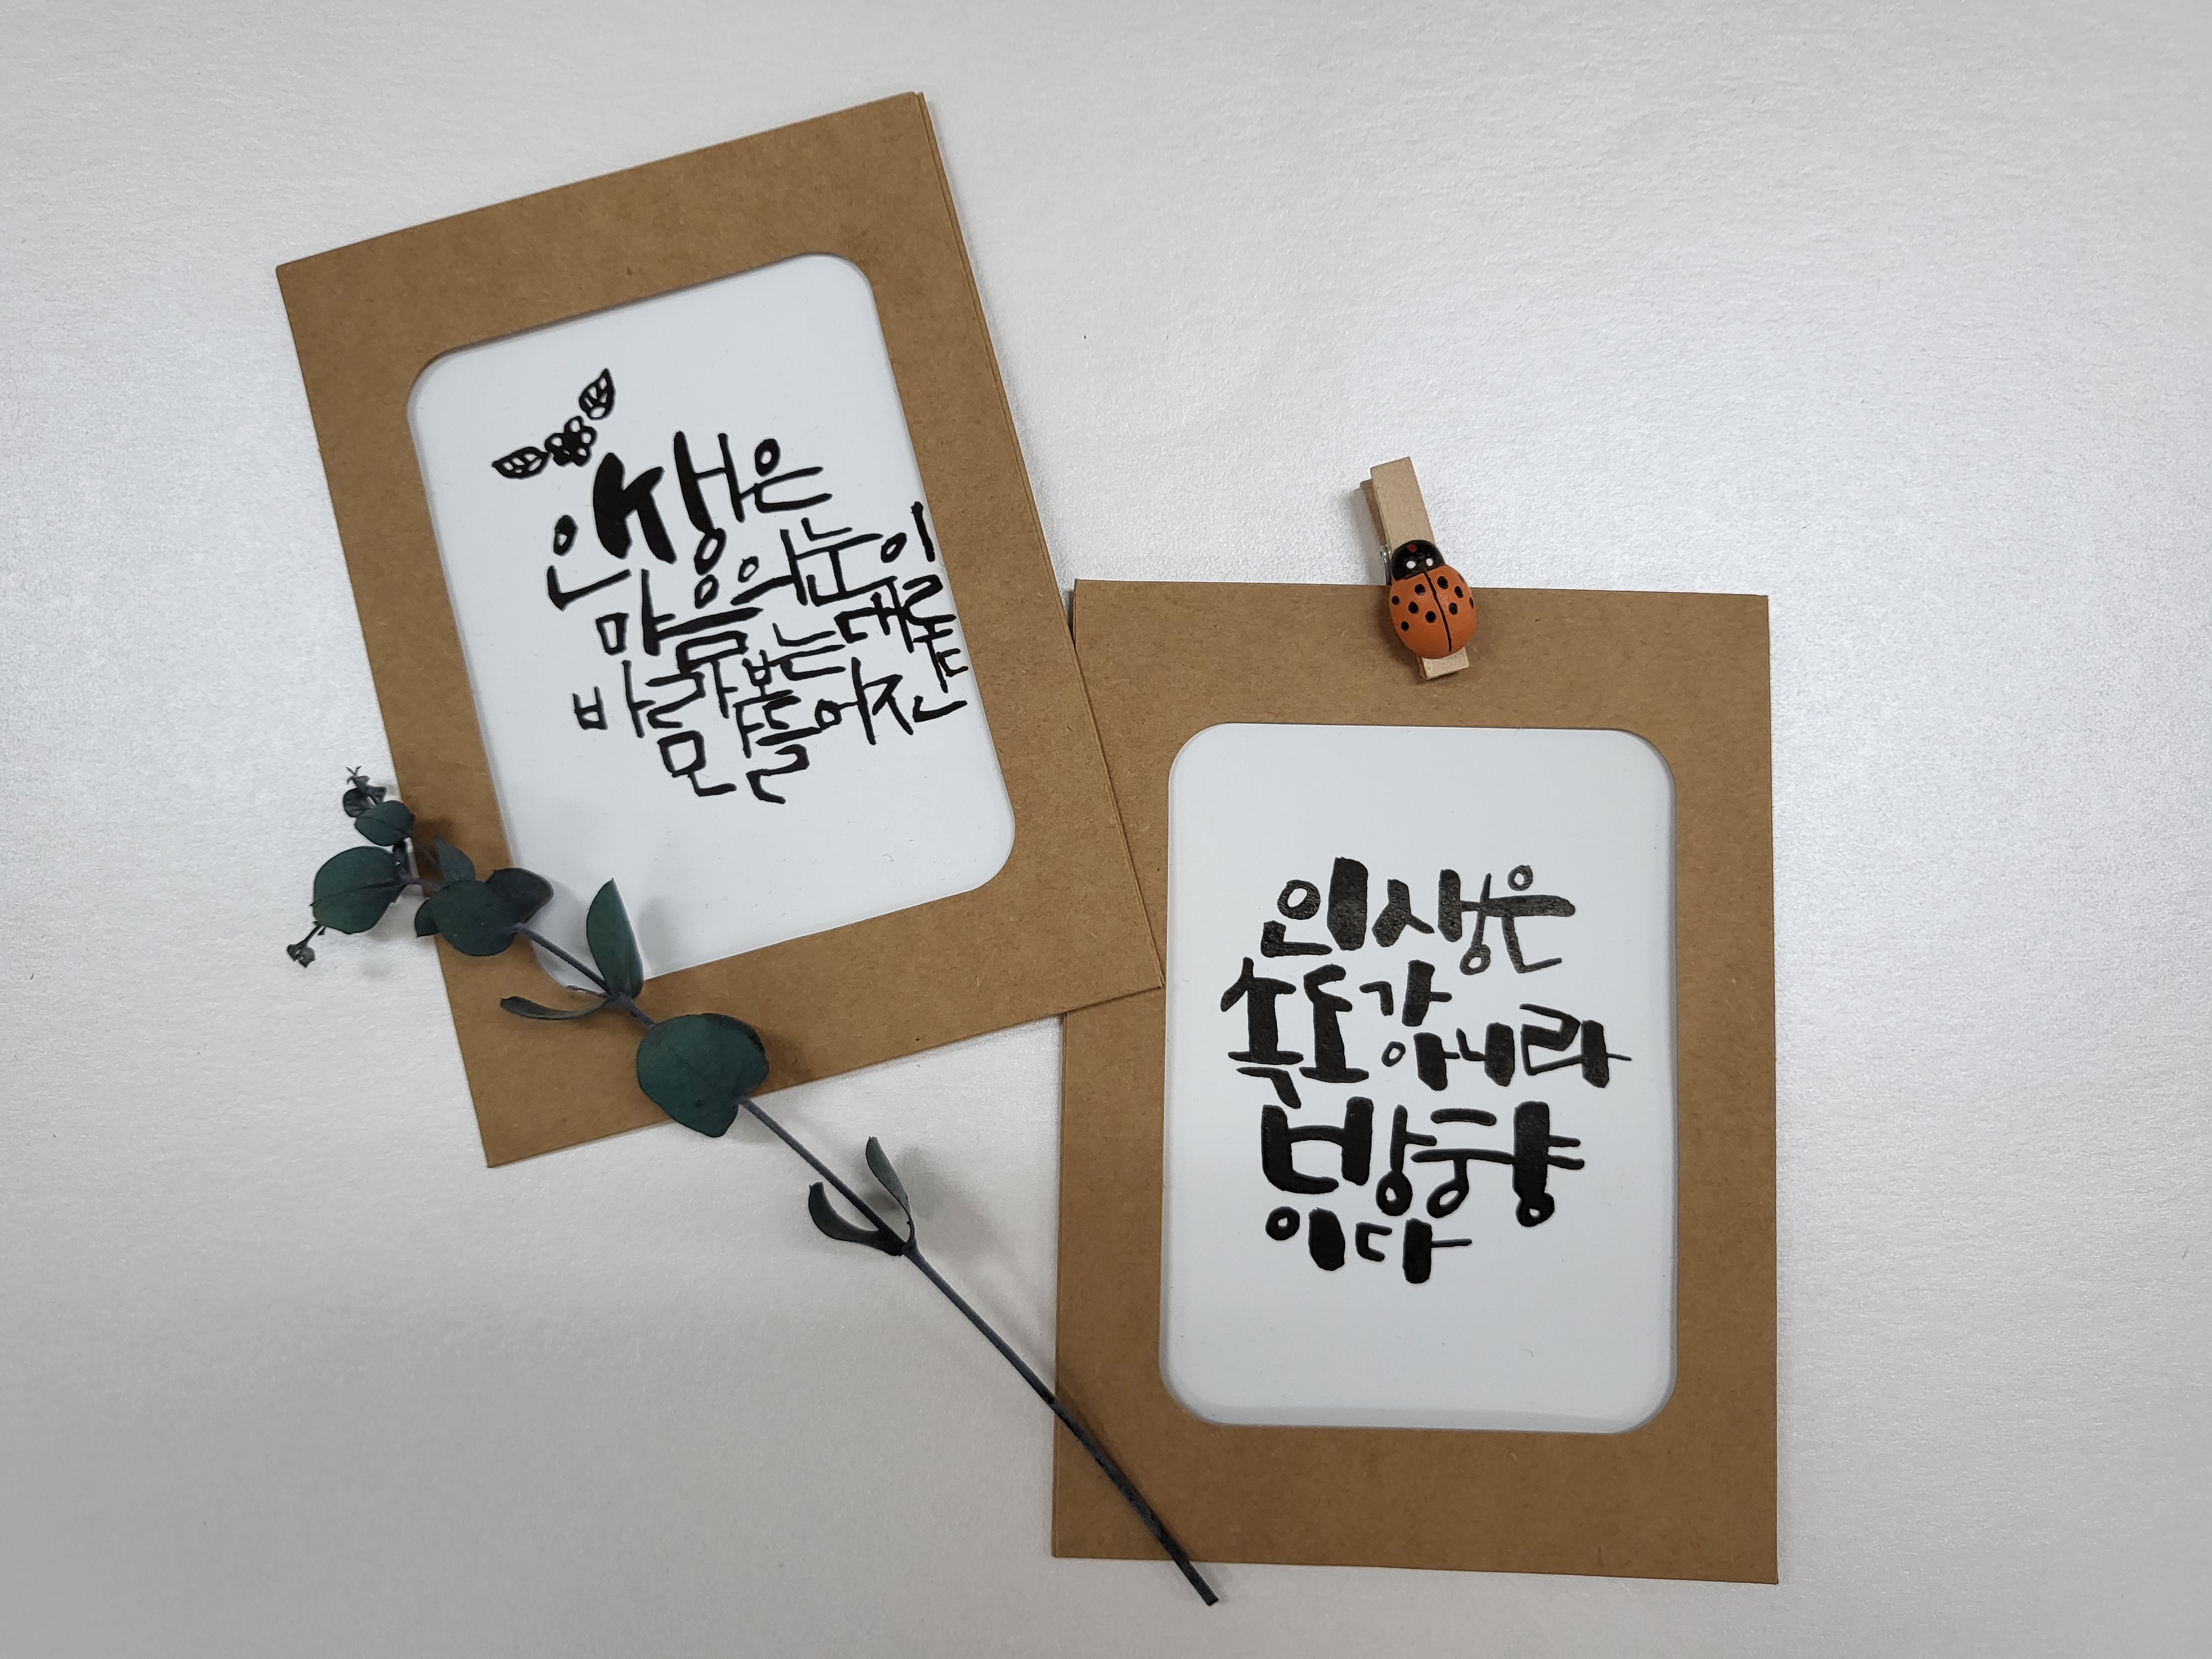 인생은
마음의 눈이
바라보는 대로
만들어진다
인생은
속도가 아니라
방향
이다